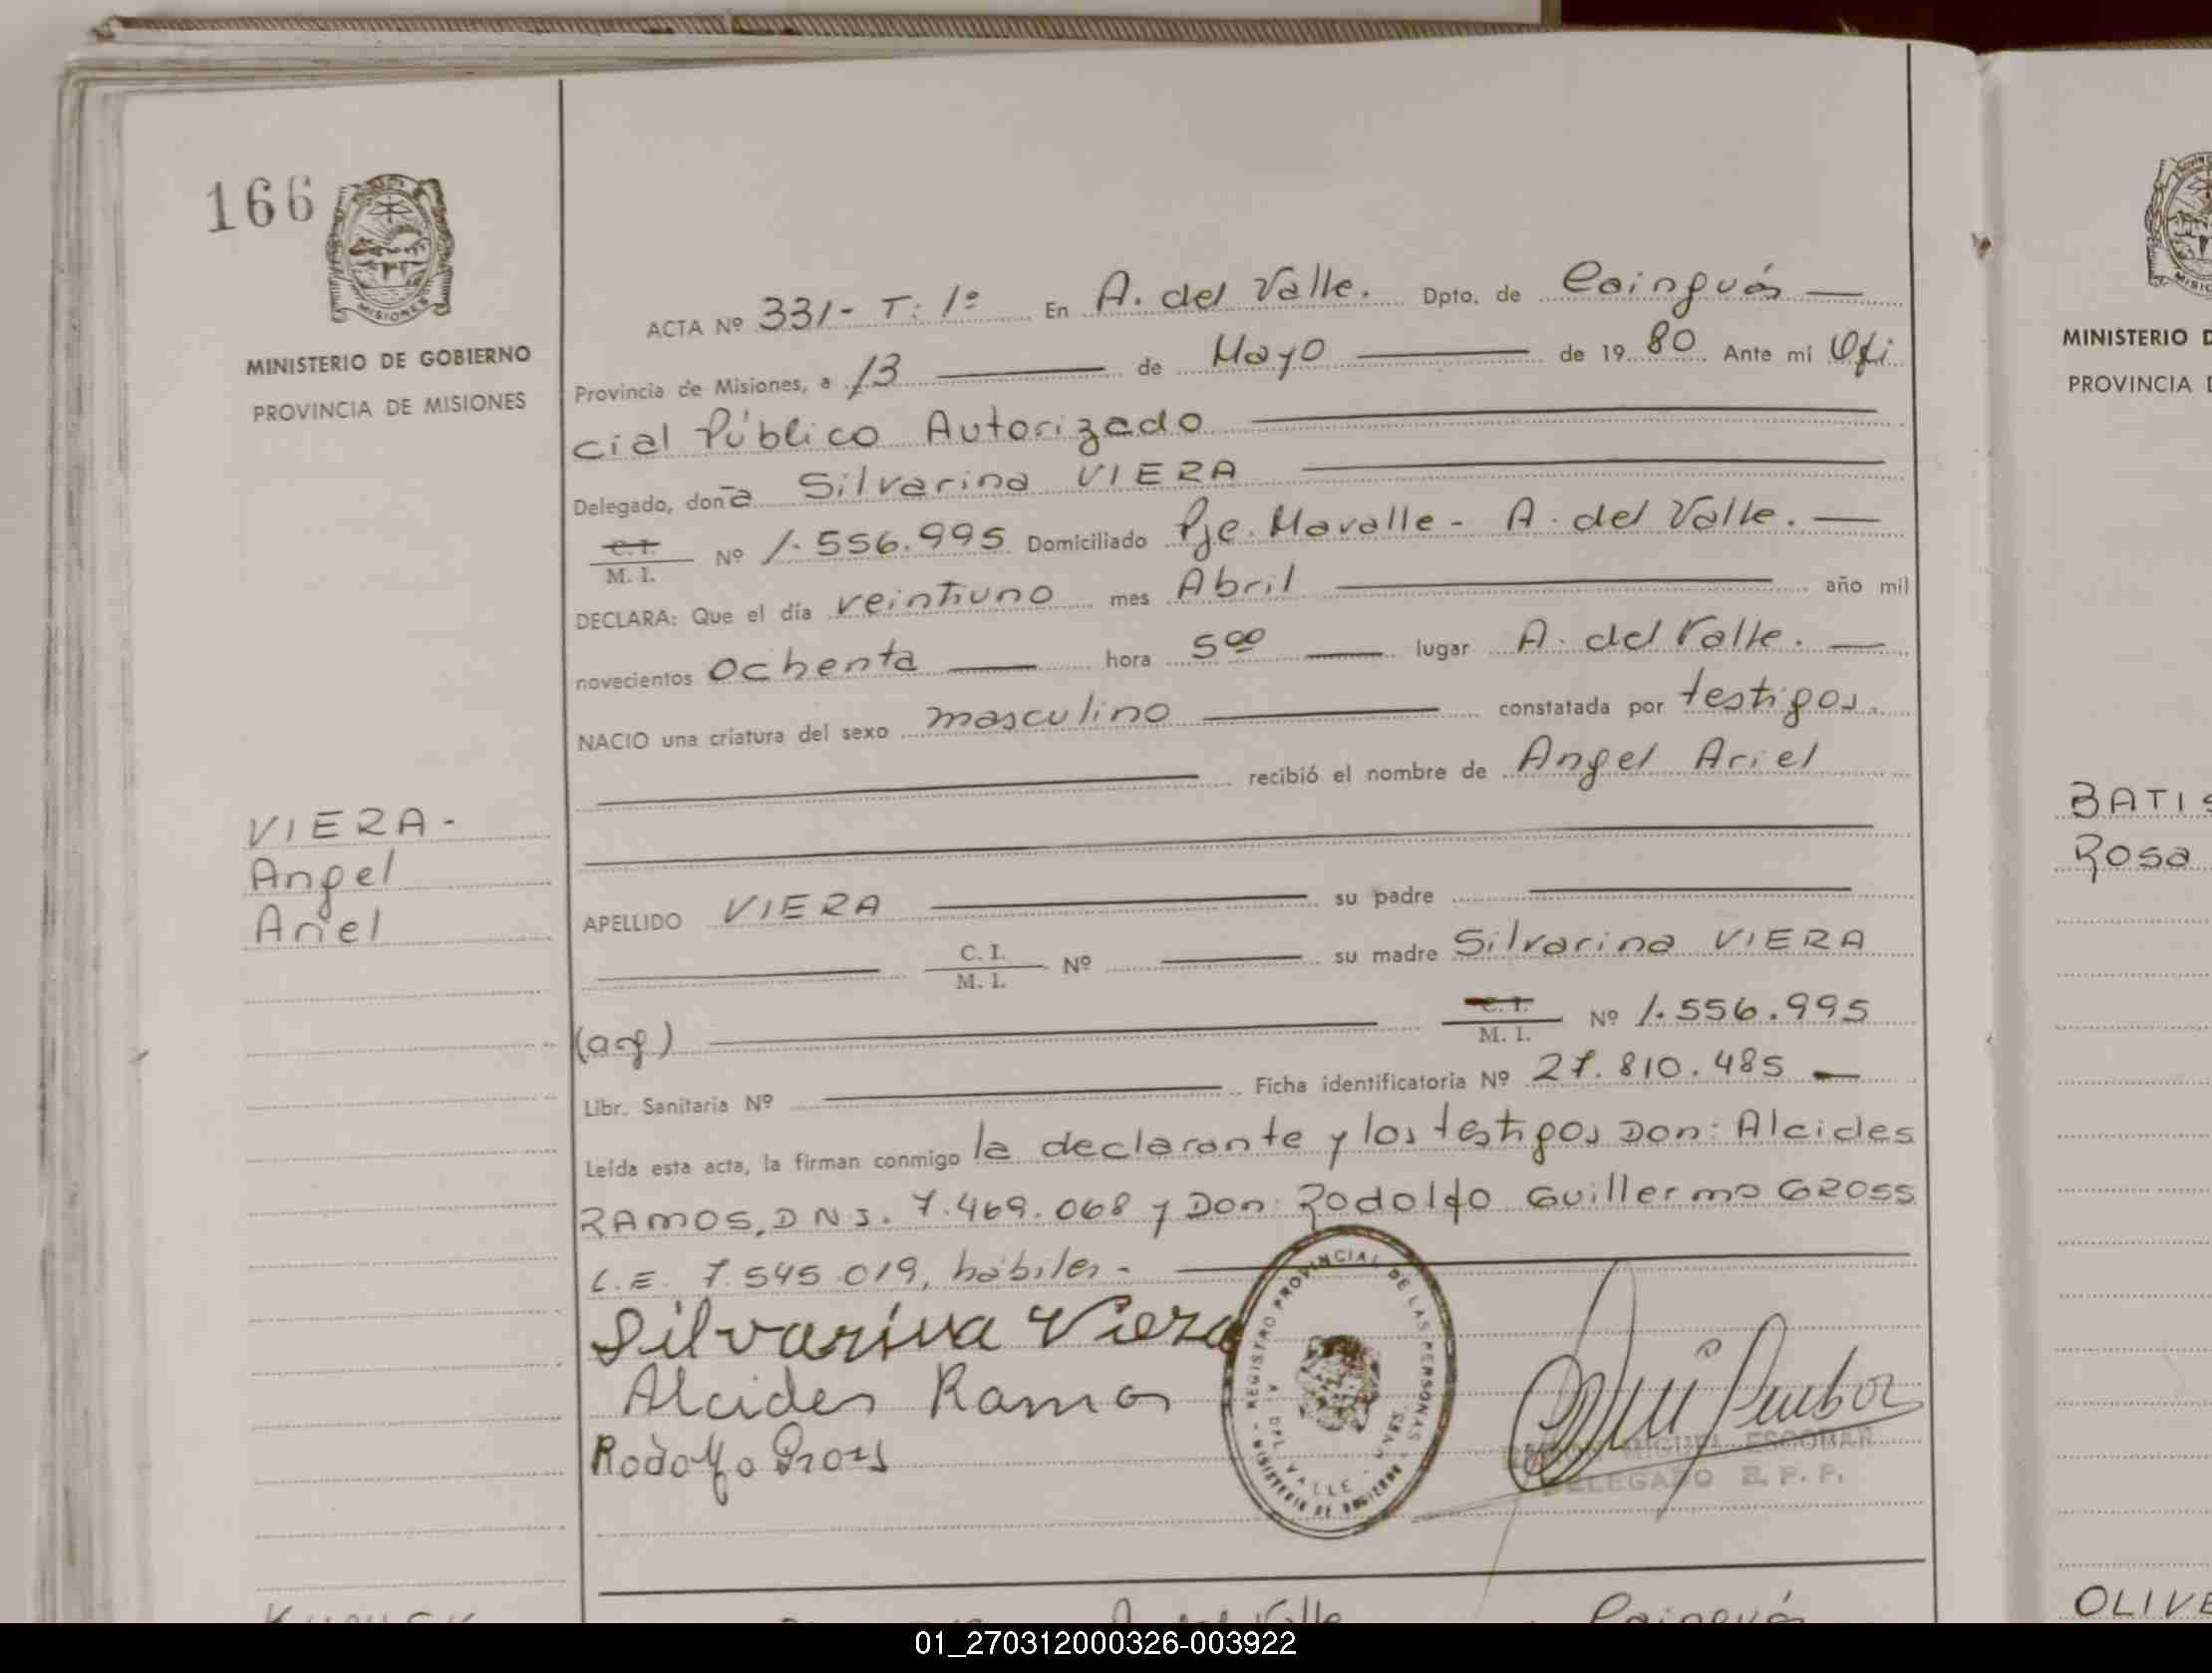 166
MISIONES
MINISTERIO DE GOBIERNO
PROVINCIA DE MISIONES
VIERA-
Angel
Ariel
ACTA Nº 331- T: 1º En A. del Valle. Dpto. de Cainguás
Provincia de Misiones, a 13 de Mayo de 1980 Ante mí Ofi
cial Público Autorizado
Delegado, doña Silvarina VIERA
C. I.
M. I. Nº 1.556.995 Domiciliado Pje. Mavalle - A. del Valle.
DECLARA: Que el día veintiuno mes Abril año mil
novecientos ochenta hora 5⁰⁰ lugar A. del Valle.
NACIO una criatura del sexo masculino constatada por testigos.
recibió el nombre de Angel Ariel
APELLIDO VIERA su padre
C. I.
M. I. Nº su madre Silvarina VIERA
(arg)
C. I.
M. I. Nº 1.556.995
Libr. Sanitaria Nº Ficha identificatoria Nº 27.810.485
Leída esta acta, la firman conmigo la declarante y los testigos Don: Alcides
RAMOS, DNI. 7.469.068 y Don: Rodolfo Guillermo GROSS
L.E. 7.545.019, hábiles.-
Silvarina Viera
Alcides Ramos
Rodolfo Gross
REGISTRO PROVINCIAL DE LAS PERSONAS
A DEL VALLE - MNES.
MINISTERIO DE GOBIERNO
MIGUEL ESCOBAR
DELEGADO R. P. P.
A. del Valle Cainguás
MINISTERIO D
PROVINCIA D
BATIS
Rosa
OLIVE
01_270312000326-003922